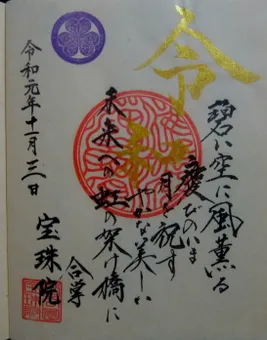 令和
碧い空に風薫る
慶びのいま
月を祝す
やかな美しい
未来への虹の架け橋に
合掌
宝珠院
令和元年十一月三日